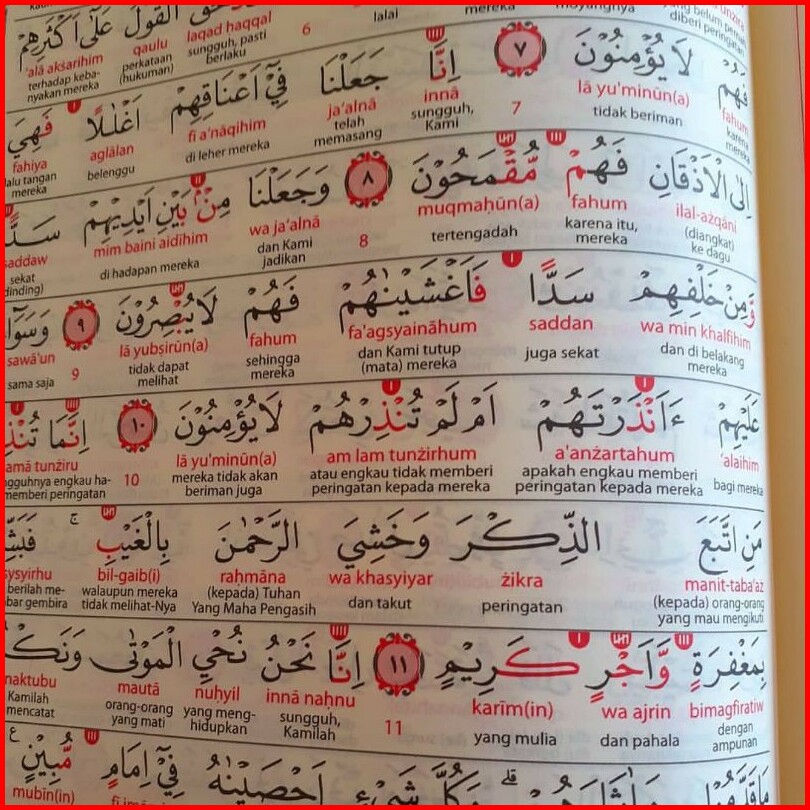 الْقَوْلُ عَلٰٓى اَكْثَرِهِمْ
laqad haqqal qaulu 'alā akṡarihim
6 sungguh, pasti berlaku perkataan (hukuman) terhadap keba-nyakan mereka
lalai mereka
diberi peringatan
فَهُمْ لَا يُؤْمِنُوْنَ ٧ اِنَّا جَعَلْنَا فِيْٓ اَعْنَاقِهِمْ اَغْلٰلًا فَهِيَ
fahum lā yu'minūn(a) 7 innā ja'alnā fī a'nāqihim aglālan fahiya
karena mereka tidak beriman sungguh, Kami telah memasang di leher mereka belenggu lalu tangan mereka
اِلَى الْاَذْقَانِ فَهُمْ مُّقْمَحُوْنَ ٨ وَجَعَلْنَا مِنْۢ بَيْنِ اَيْدِيْهِمْ سَدًّا
ilal-ażqāni fahum muqmaḥūn(a) 8 wa ja'alnā mim baini aidihim saddaw
(diangkat) ke dagu karena itu, mereka tertengadah dan Kami jadikan di hadapan mereka sekat (dinding)
وَّمِنْ خَلْفِهِمْ سَدًّا فَاَغْشَيْنٰهُمْ فَهُمْ لَا يُبْصِرُوْنَ ٩ وَسَوَاۤءٌ
wa min khalfihim saddan fa'agsyaināhum fahum lā yubṣirūn(a) 9 sawā'un
dan di belakang mereka juga sekat dan Kami tutup (mata) mereka sehingga mereka tidak dapat melihat sama saja
عَلَيْهِمْ ءَاَنْذَرْتَهُمْ اَمْ لَمْ تُنْذِرْهُمْ لَا يُؤْمِنُوْنَ ١٠ اِنَّمَا
'alaihim a'anżartahum am lam tunżirhum lā yu'minūn(a) 10 tunżiru
bagi mereka apakah engkau memberi peringatan kepada mereka atau engkau tidak memberi peringatan kepada mereka mereka tidak akan beriman juga engkau ha- memberi peringatan
مَنِ اتَّبَعَ الذِّكْرَ وَخَشِيَ الرَّحْمٰنَ بِالْغَيْبِ
manit-taba'aż żikra wa khasyiyar raḥmāna bil-gaib(i)
(kepada) orang-orang yang mau mengikuti peringatan dan takut (kepada) Tuhan Yang Maha Pengasih walaupun mereka tidak melihat-Nya gembira
بِمَغْفِرَةٍ وَّاَجْرٍ كَرِيْمٍ ١١ اِنَّا نَحْنُ نُحْيِ الْمَوْتٰى
bimagfiratiw wa ajrin karīm(in) 11 innā naḥnu nuḥyil mautā naktubu
dengan ampunan dan pahala yang mulia sungguh, Kamilah yang meng-hidupkan orang-orang yang mati Kamilah mencatat
اَحْصَيْنٰهُ فِيْٓ اِمَامٍ مُّبِيْنٍ
mubīn(in)